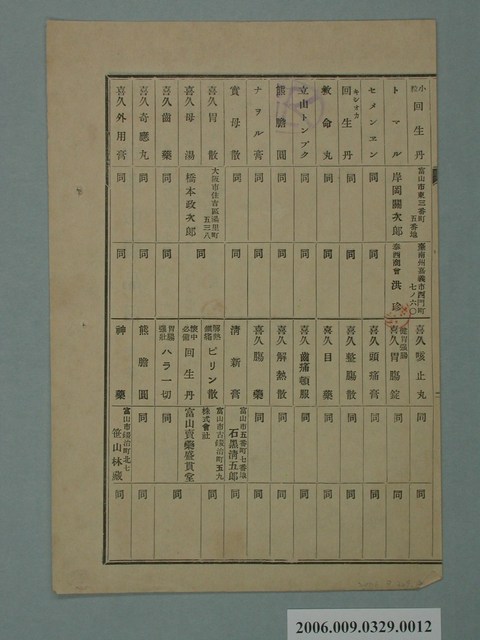 小粒 回生丹 富山市東三番町五番地 臺南州嘉義市西門町七ノ六〇
トマル 岸岡關次郎 泰西商會 洪珍
セメンエン 同 同
キシオカ 回生丹 同 同
救命丸 同 同
立山トンプク 同 同
熊膽圓 同 同
ナヲル膏 同 同
實母散 同 同
喜久胃散 大阪市住吉區湯里町五三八 同
喜久母湯 橋本政次郎
喜久齒藥 同 同
喜久奇應丸 同 同
喜久外用膏 同 同
喜久咳止丸 同 同
健胃强腸 喜久胃腸錠 同 同
喜久頭痛膏 同 同
喜久整腸散 同 同
喜久目藥 同 同
喜久齒痛頓服 同 同
喜久解熱散 同 同
喜久腸藥 同 同
清新膏 富山市五番町七番地 石黑清五郎 同
解熱鎭痛 ピリン散 富山市古鍛治町五九 株式會社
懷中必備 回生丹 富山賣藥盛貫堂 同
胃腸强壯 ハラ一切 同 同
熊膽圓 同 同
神藥 富山市鍛治町北七 笹山林藏 同
2006.009.0329.0012